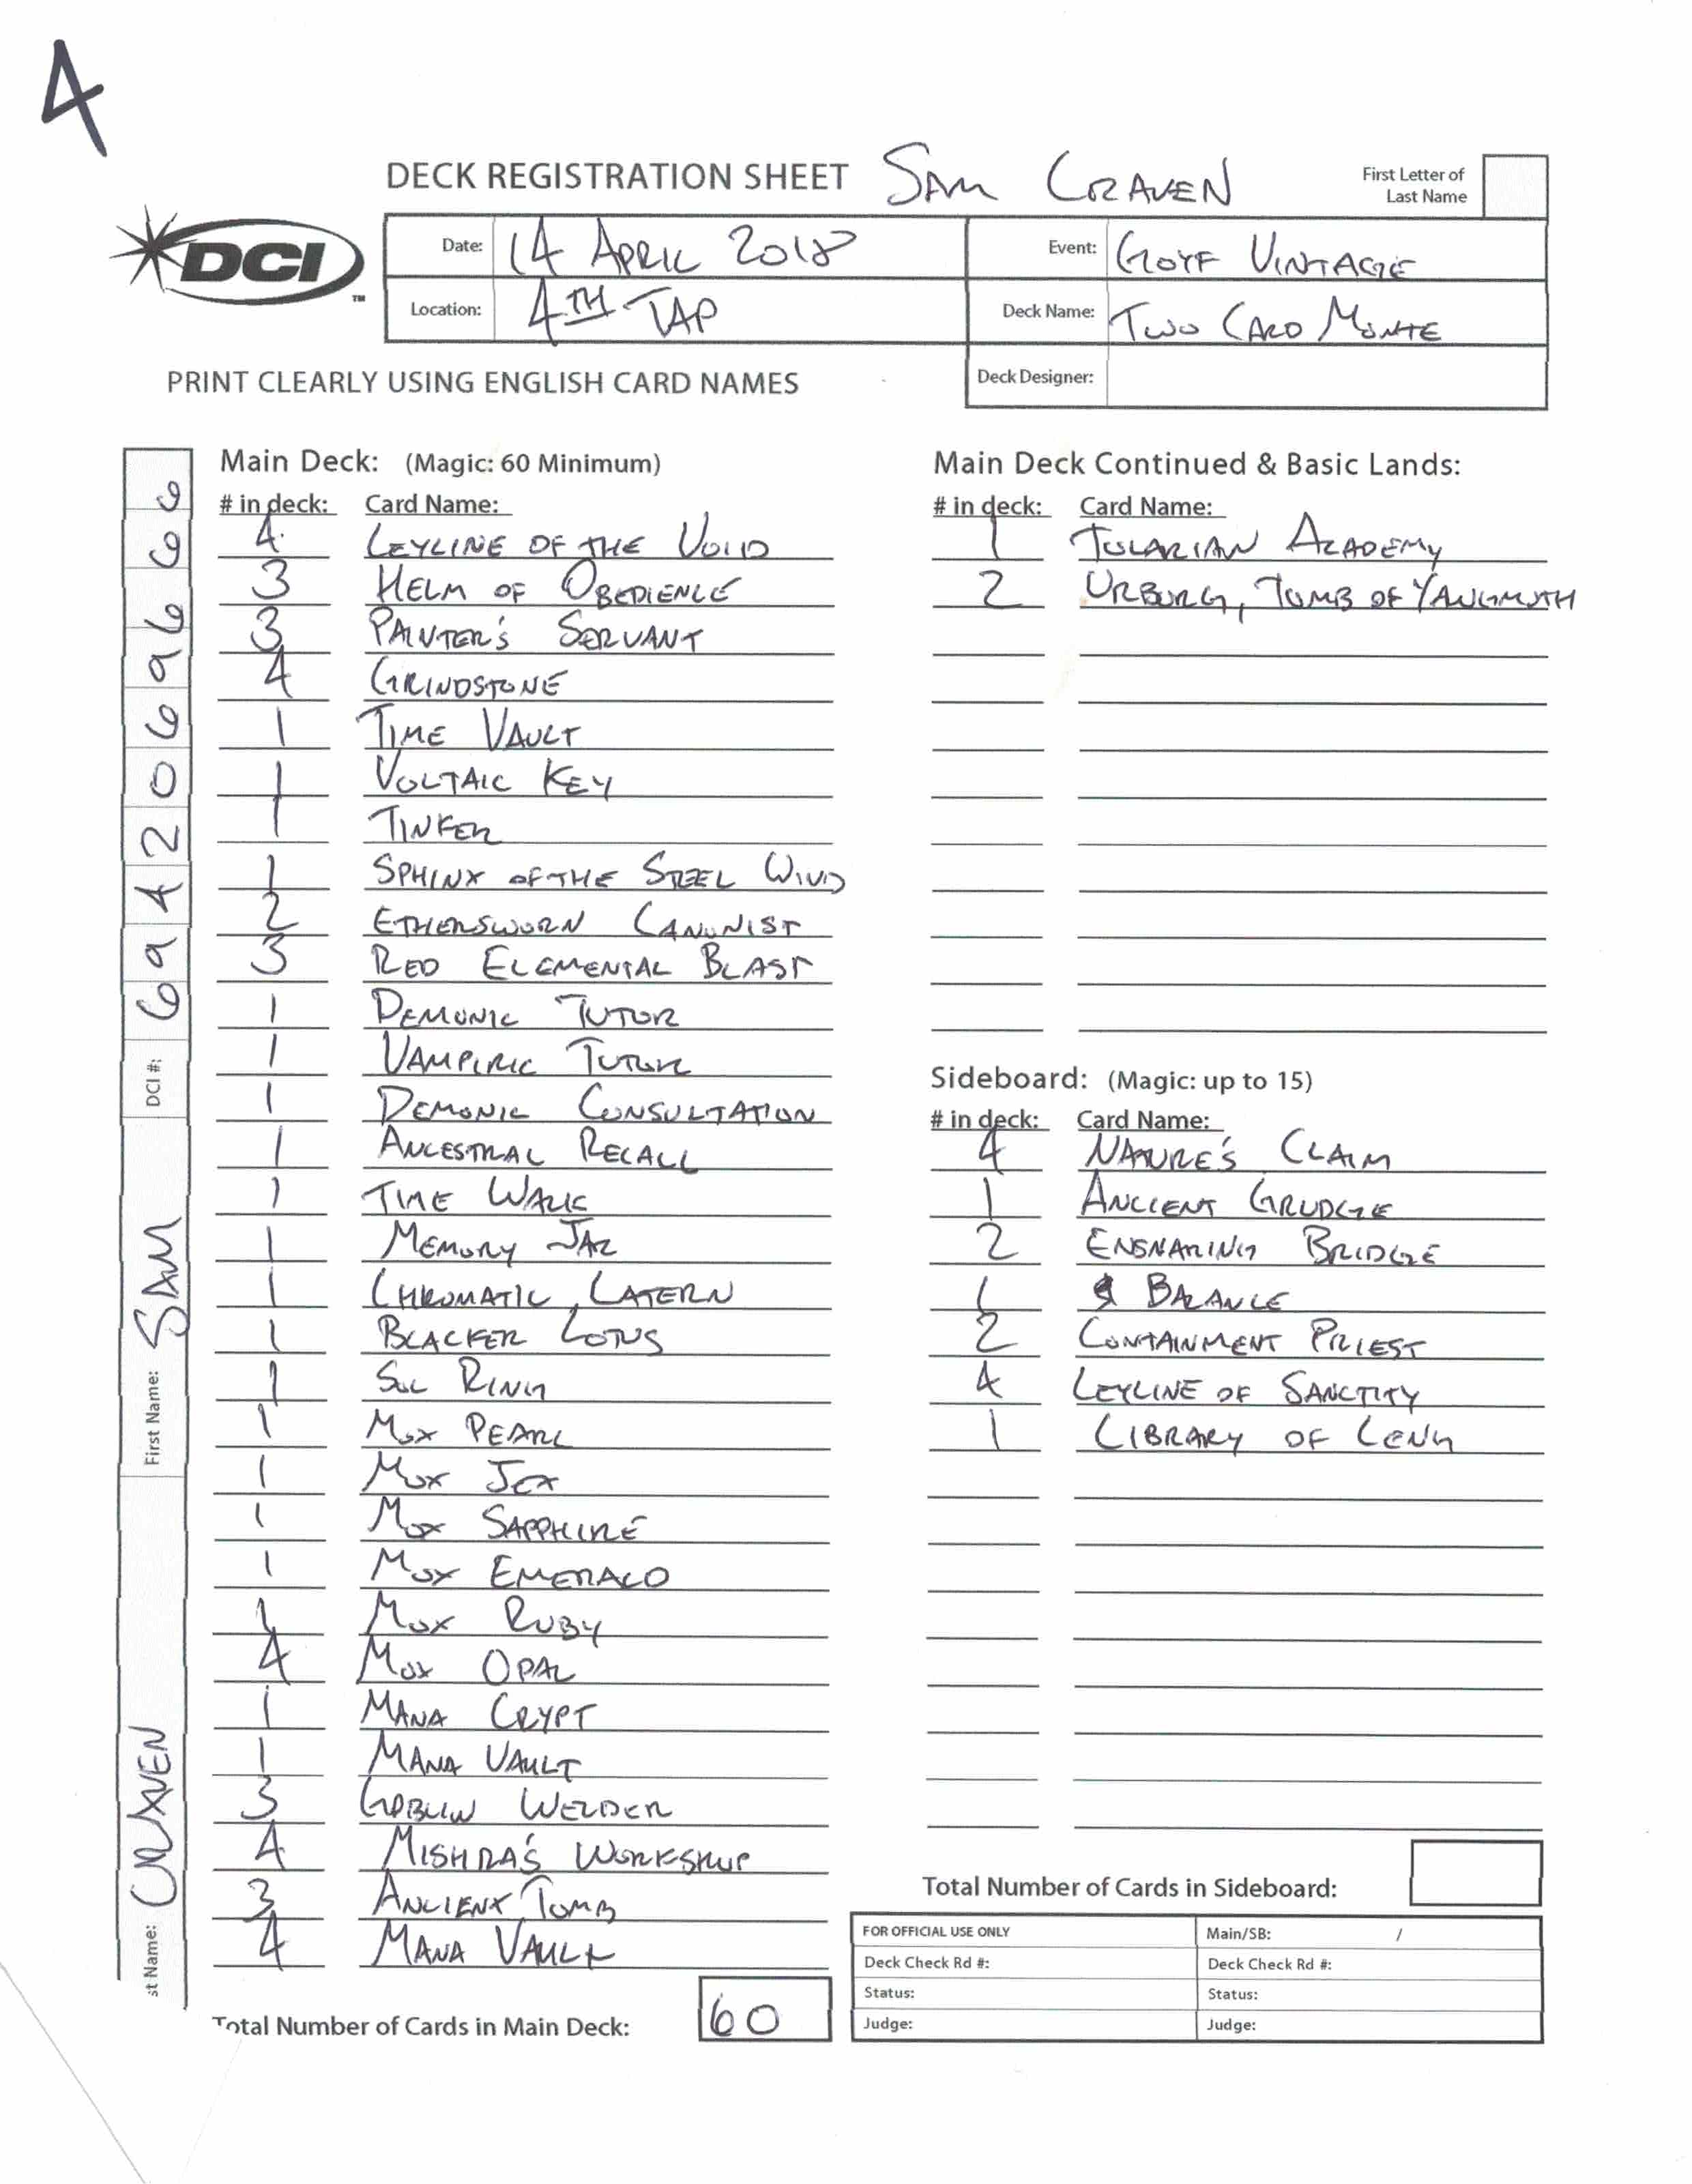 4
DECK REGISTRATION SHEET SAM CRAVEN First Letter of Last Name
DCI TM
Date: 14 APRIL 2018 Event: GOYF VINTAGE
Location: 4TH TAP Deck Name: TWO CARD MONTE
PRINT CLEARLY USING ENGLISH CARD NAMES Deck Designer:
Main Deck: (Magic: 60 Minimum)
# in deck: Card Name:
4 LEYLINE OF THE VOID
3 HELM OF OBEDIENCE
3 PAINTER'S SERVANT
4 GRINDSTONE
1 TIME VAULT
1 VOLTAIC KEY
1 TINKER
1 SPHINX OF THE STEEL WIND
2 ETHERSWORN CANONIST
3 RED ELEMENTAL BLAST
1 DEMONIC TUTOR
1 VAMPIRIC TUTOR
1 DEMONIC CONSULTATION
1 ANCESTRAL RECALL
1 TIME WALK
1 MEMORY JAR
1 CHROMATIC LATERN
1 BLACKER LOTUS
1 SOL RING
1 MOX PEARL
1 MOX JET
1 MOX SAPPHIRE
1 MOX EMERALD
1 MOX RUBY
4 MOX OPAL
1 MANA CRYPT
1 MANA VAULT
3 GOBLIN WELDER
4 MISHRA'S WORKSHOP
3 ANCIENT TOMB
4 MANA VAULT
Total Number of Cards in Main Deck: 60
Main Deck Continued & Basic Lands:
# in deck: Card Name:
1 TOLARIAN ACADEMY
2 URBORG, TOMB OF YAWGMOTH
Sideboard: (Magic: up to 15)
# in deck: Card Name:
4 NATURE'S CLAIM
1 ANCIENT GRUDGE
2 ENSNARING BRIDGE
1 BALANCE
2 CONTAINMENT PRIEST
4 LEYLINE OF SANCTITY
1 LIBRARY OF LENG
Total Number of Cards in Sideboard:
FOR OFFICIAL USE ONLY Main/SB: /
Deck Check Rd #: Deck Check Rd #:
Status: Status:
Judge: Judge:
st Name: CRAVEN First Name: SAM DCI #: 6942069666